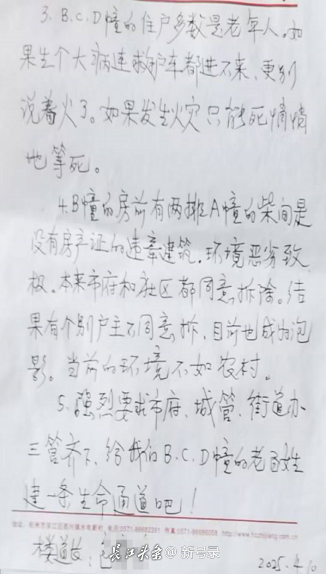 3. B.C.D幢的住户多数是老年人。如
果生个大病连救护车都进不来，更别
说着火了。如果发生火灾只能死惰惰
地等死。
4.B幢的房前有两排A幢的柴间是
没有房产证的违章建筑，环境恶劣致
极，本来市府和社区都同意拆除，结
果有个别户主不同意拆，目前也成为泡
影。当前的环境不如农村。
5.强烈要求市府、城管、街道办
三管齐下，给我们B.C.D幢的老百姓
建一条生命通道吧！
http://www.hzzhijiang.com.cn
楼道长：
2025.4.10
长江云新闻 @新昔录